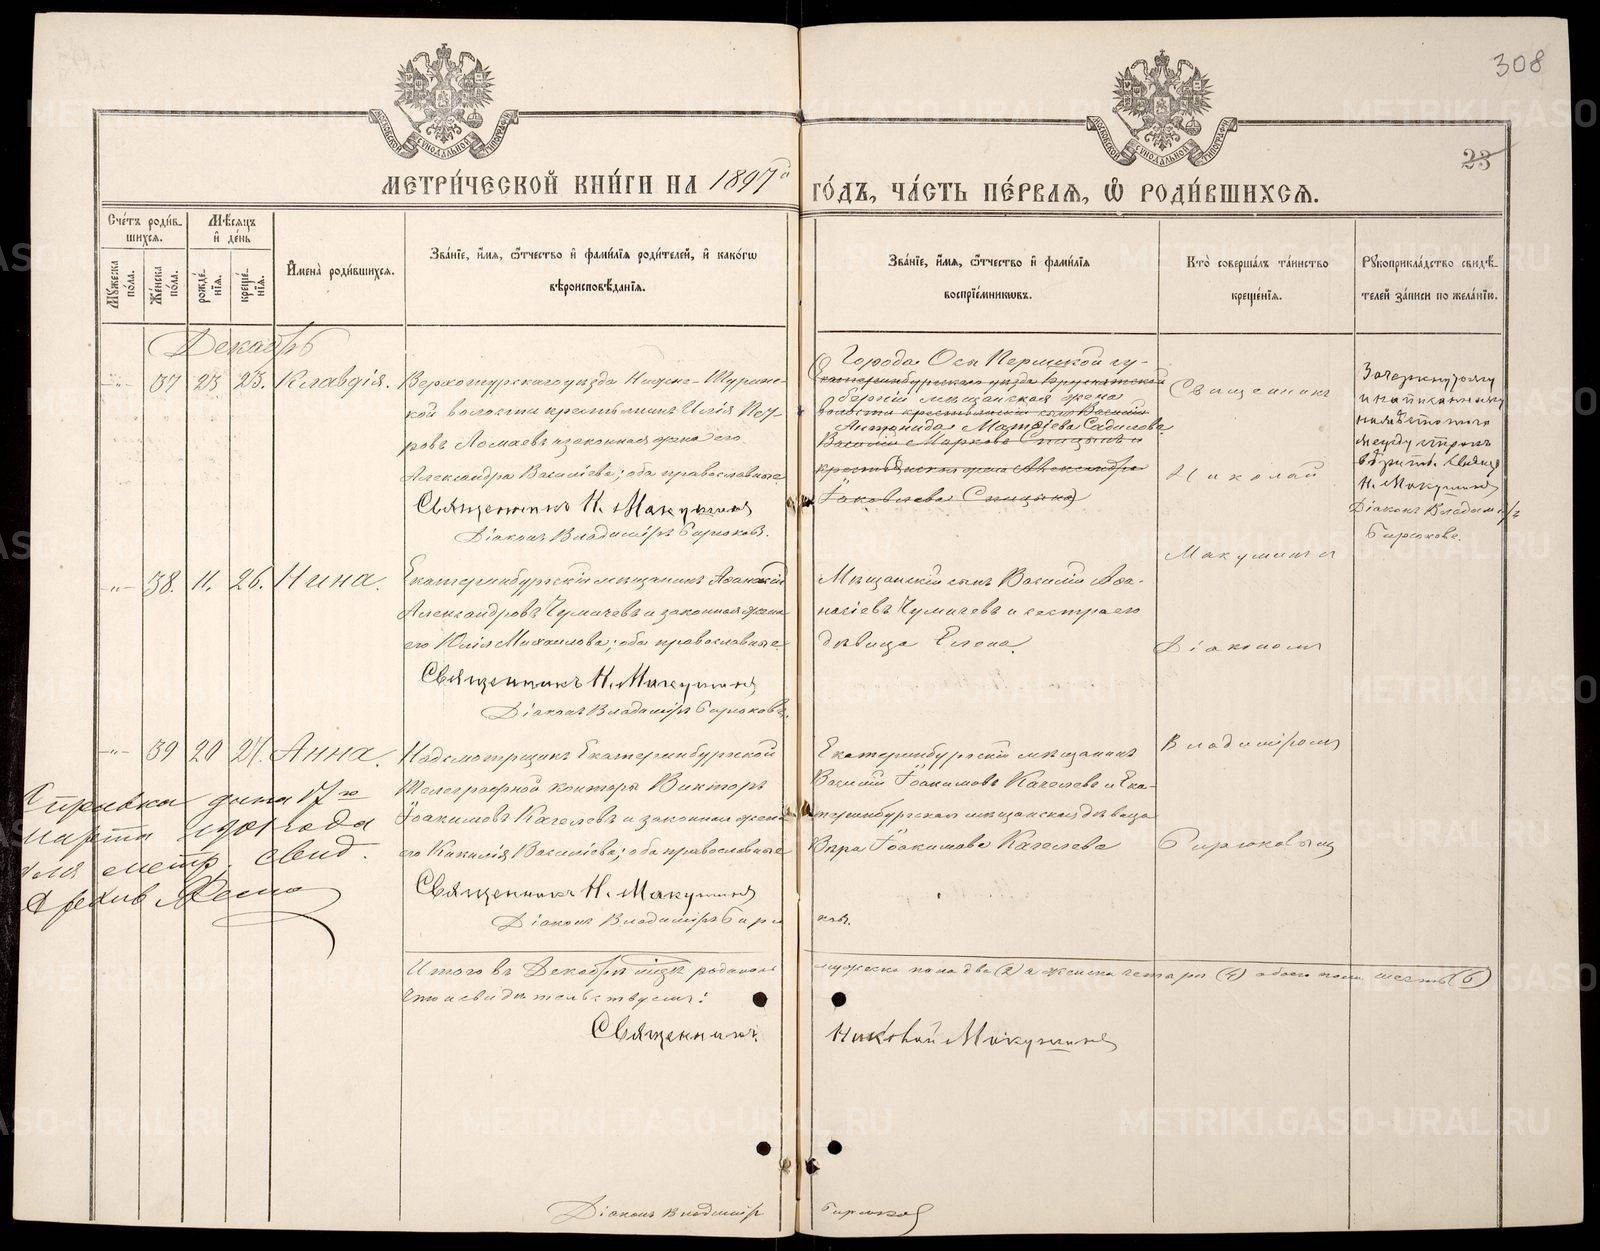 308
23
МОСКОВСКОЙ СУНОДАЛЬНОЙ ТИПОГРАФІИ
МОСКОВСКОЙ СУНОДАЛЬНОЙ ТИПОГРАФІИ
МЕТРИ́ЧЕСКОЙ КНИ́ГИ НА 1897й ГО́ДЪ, ЧА́СТЬ ПЕ́РВАѦ, Ѽ РОДИ́ВШИХСѦ.
Сче́тъ роди́в-
шихсѧ.
Мꙋжеска по́ла.
Же́нска по́ла.
Мѣ́сѧцъ
и҆ де́нь
рожде́-
нїѧ.
креще́-
нїѧ.
И҆мена̀ роди́вшихсѧ.
Зва́нїе, и҆́мѧ, ѻ҆́тчество и҆ фами́лїѧ роди́телей, и҆ како́гѡ
вѣроисповѣ́данїѧ.
Зва́нїе, и҆́мѧ, ѻ҆́тчество и҆ фами́лїѧ
воспрїе́мникѡвъ.
Кто̀ соверша́лъ та́инство
креще́нїѧ.
Рꙋкоприкла́дство свидѣ́-
телей за́писи по жела́нїю.
Декабрь
-„- 37 23 25. Клавдія.
Верхотурскаго уѣзда Нижне-Турин-
ской волости крестьянинъ Илія Пет-
ровъ Ломаевъ и законная жена его
Александра Василіева; оба православные
Священникъ Н. Макушинъ
Діаконъ Владиміръ Бирюковъ.
Города Осы Пермской гу-
берніи мѣщанская жена
Антонида Матѳіева Садилова.
Екатеринбургскаго уѣзда
волости крестьянскій сынъ Василій
Василій Марковъ Спицынъ и
крестьянская жена Александра
Іаковлева Спицына)
Зачеркнутому
и написанному
между строкъ
вѣрить. Священ
Н. Макушинъ
Діаконъ Владиміръ
Бирюковъ.
-„- 38. 11. 26. Нина.
Екатеринбургскій мѣщанинъ Аѳанасій
Александровъ Чумичевъ и законная жена
его Юлія Михаилова; оба православные
Священникъ Н. Макушинъ
Діаконъ Владиміръ Бирюковъ.
Мѣщанскій сынъ Василій Аѳа-
насіевъ Чумичевъ и сестра его
дѣвица Елена.
-„- 39 20 27. Анна.
Надсмотрщикъ Екатеринбургской
Телеграфной конторы Викторъ
Іоакимовъ Кагелевъ и законная жена
его Кикилія Василіева; оба православные
Священникъ Н. Макушинъ
Діаконъ Владиміръ Бирюковъ.
Екатеринбургскій мѣщанинъ
Василій Іоакимовъ Кагелевъ и Ека-
теринбургская мѣщанская дѣвица
Вѣра Іоакимова Кагелева
Священникъ
Николай
Макушинъ
Діакономъ
Владиміромъ
Бирюковымъ
Справка дана 17го
марта 1901 года
для метр. свид.
Архив
Итого въ Декабрѣ мѣсяцѣ родилось мужеска пола два (2) и женска четыре (4) обоего пола шесть (6)
Что и свидѣтельствуемъ:
Священникъ Николай Макушинъ
Діаконъ Владиміръ Бирюковъ
METRIKI.GASO-URAL.RU